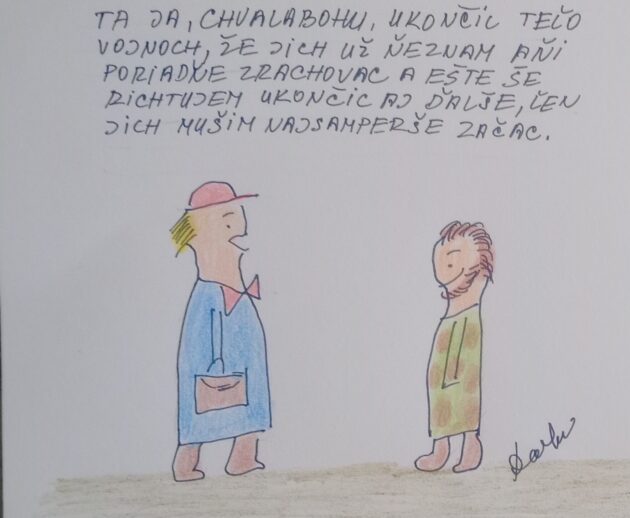 TA JA, CHVALABOHU, UKONČIL TEĽO
VOJNOCH, ŽE JICH UŽ ŇEZNAM AŇI
PORIADŇE ZRACHOVAC A EŠTE ŠE
RICHTUJEM UKONČIC AJ ĎALŠE, LEN
JICH MUŠIM NAJSAMPERŠE ZAČAC.